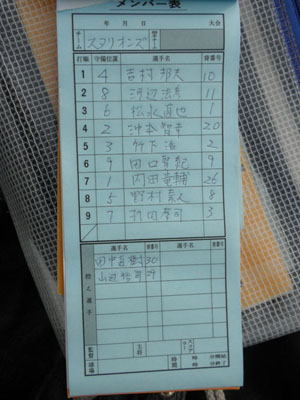 メンバー表
年 月 日 大会
チーム スタリオンズ
打順 守備位置 選手名 背番号
1 4 吉村 邦夫 10
2 8 河辺 11
3 6 松永 直也 1
4 2 沖本 智幸 20
5 3 竹下 2
6 9 田口 紀 9
7 1 内田 竜輔 26
8 5 野村 8
9 7 3
選手名 背番号 選手名 背番号
控え選手
田中 樹 30
山田 29
監督 主将
球場 時間 時 分開始
時 分終了